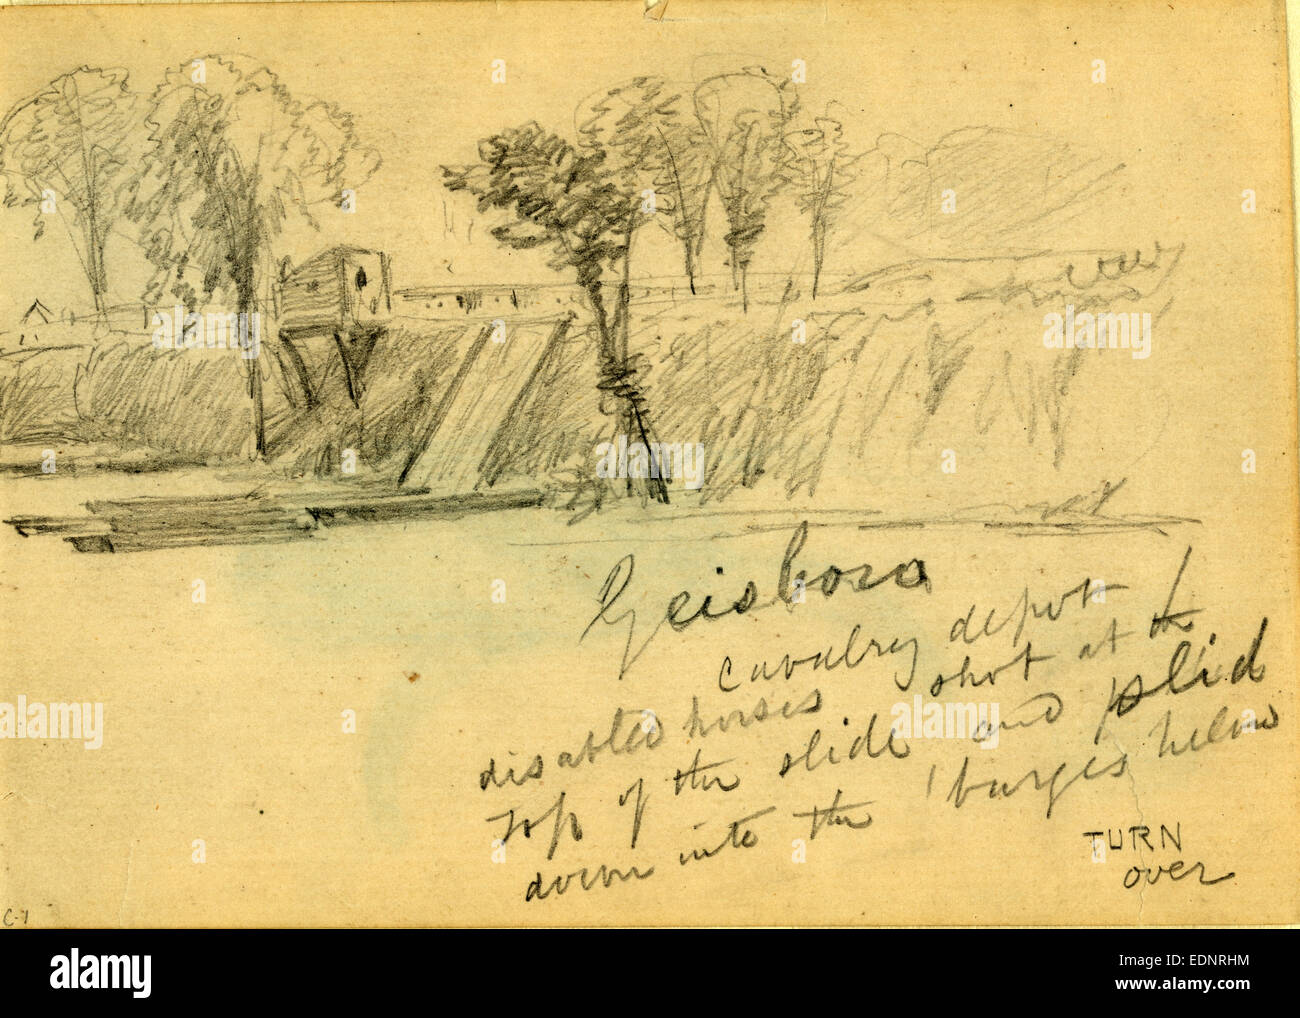 Geisboro
cavalry depot
disabled horses shot at the
top of the slide and slid
down into the barges below
TURN
over
C-1
a
alamy
Image ID: EDNRHM
www.alamy.com